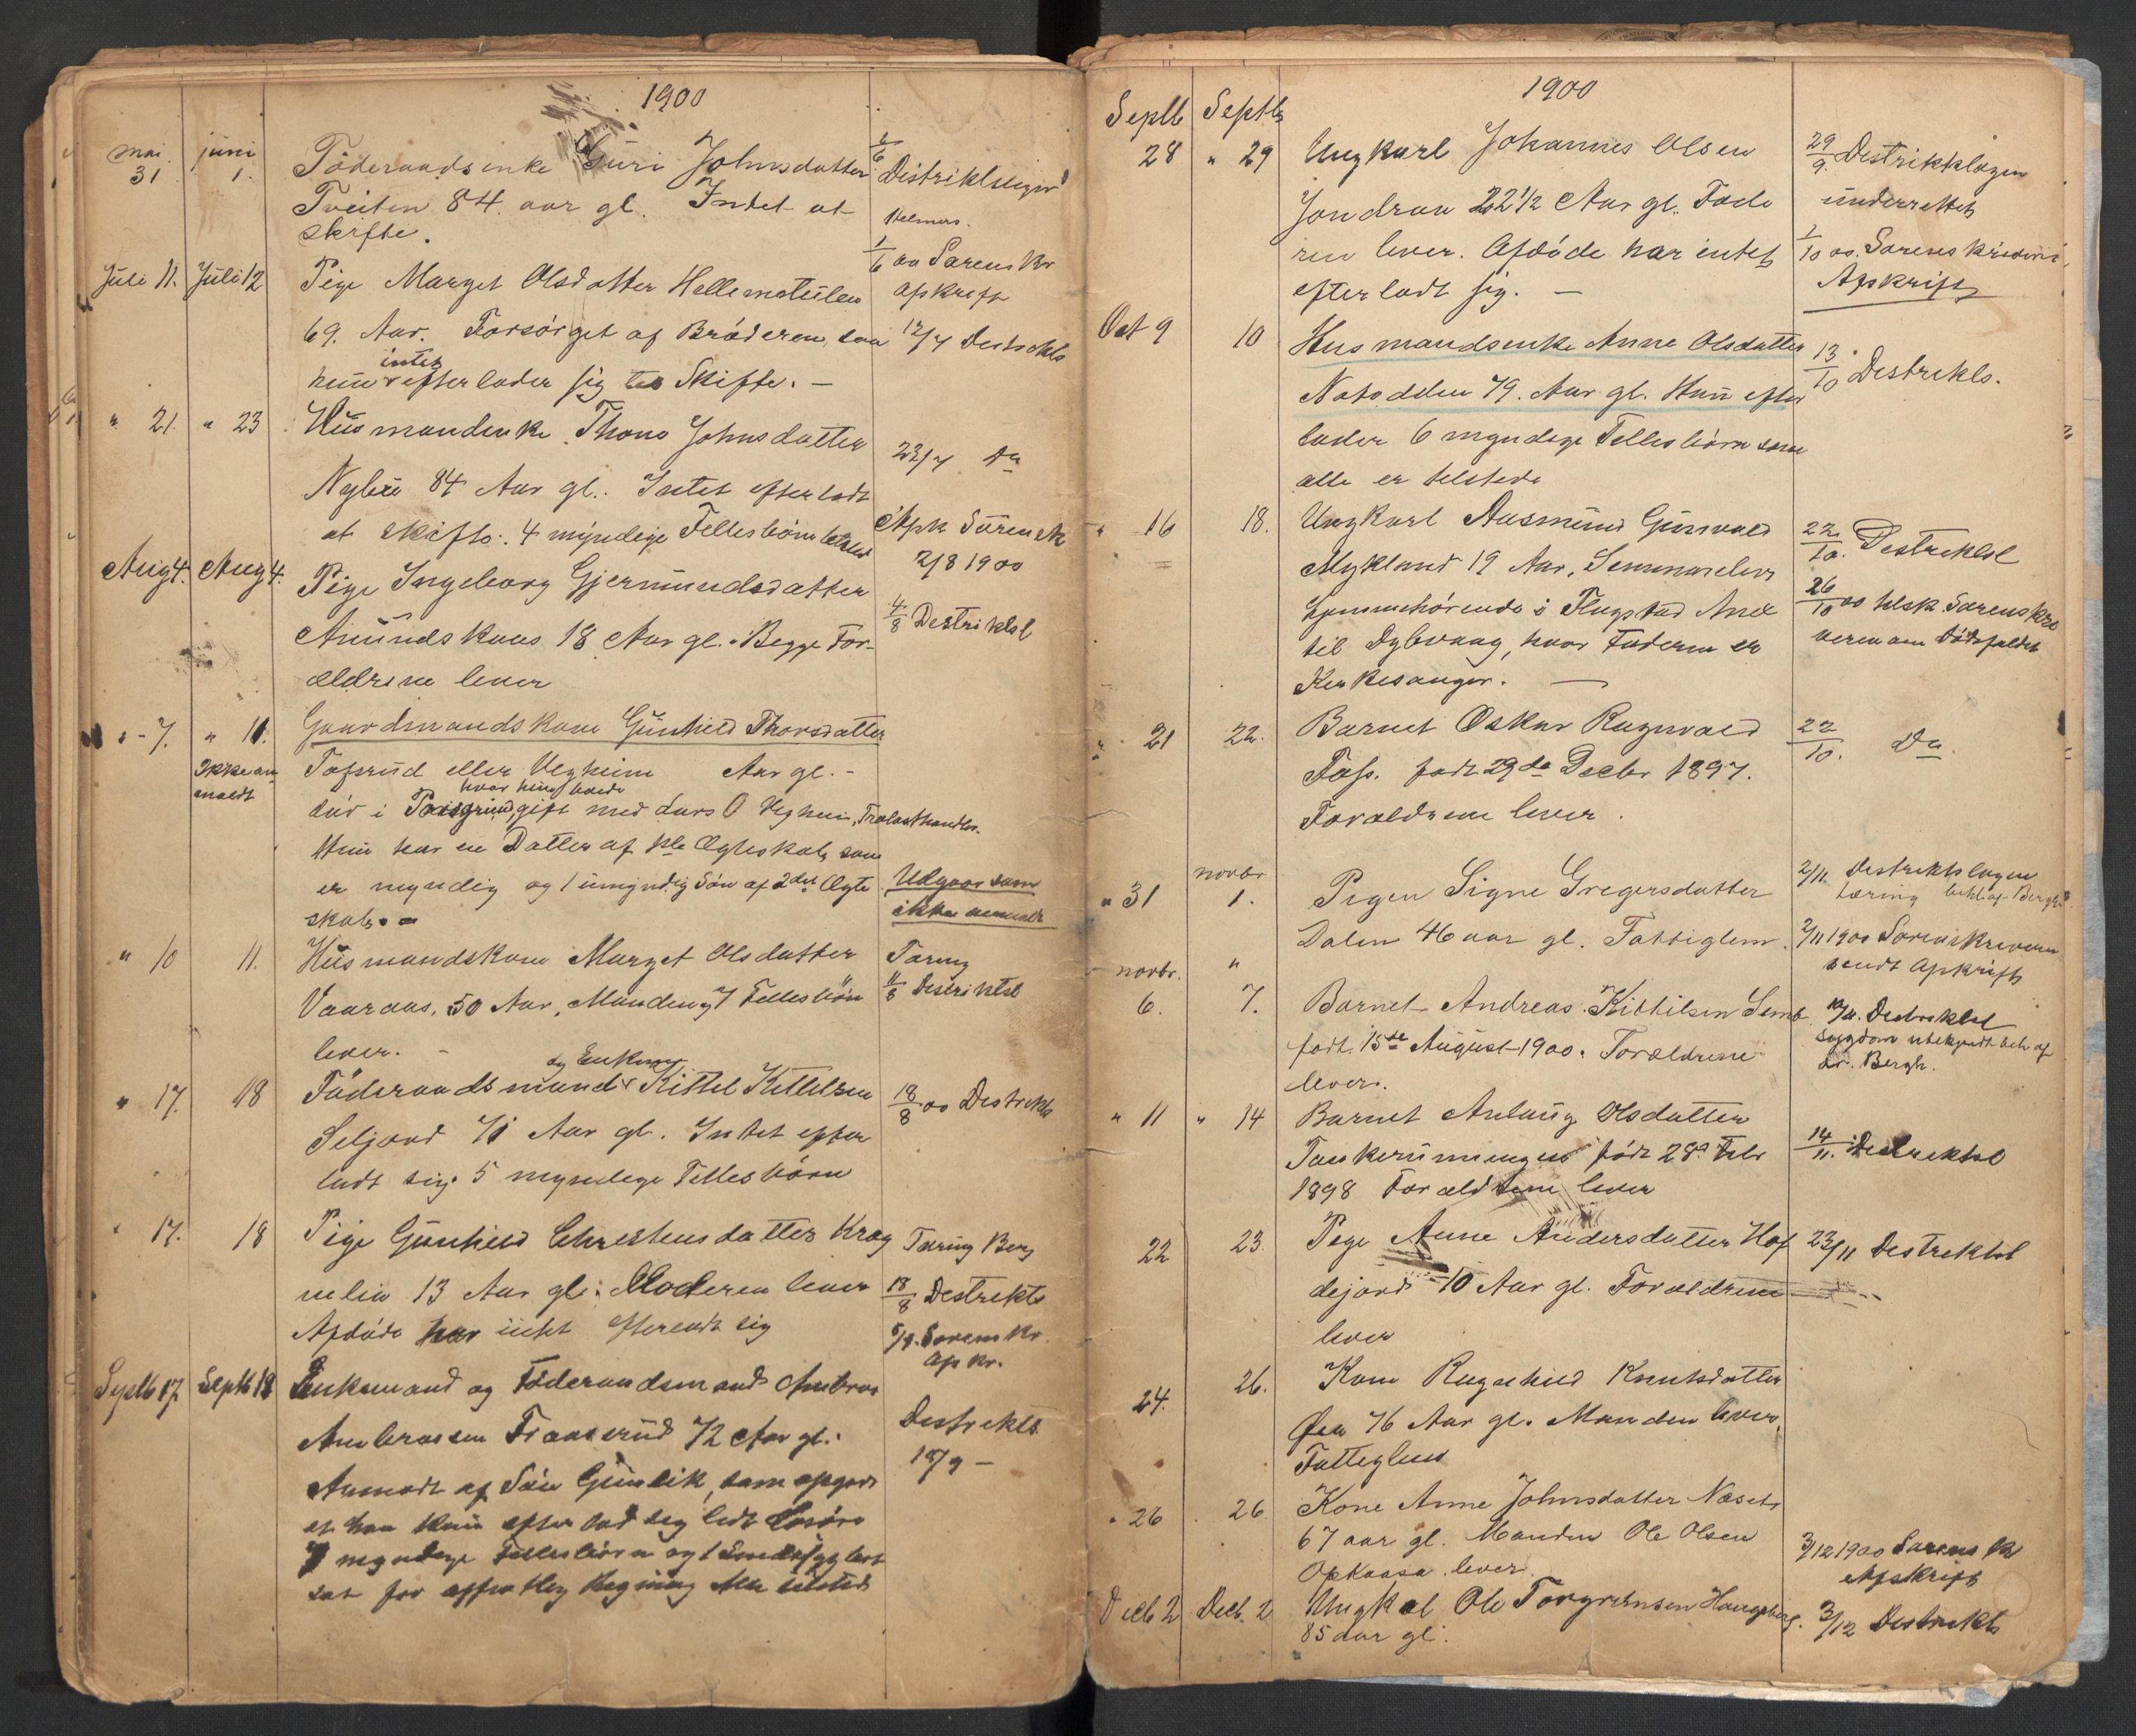 1900
mai 31 juni 1. Föderaadsenke Guri Johnsdatter
Tveiten 84. aar gl. Intet at
skifte.
1/6 Distriktslegen
1/6 00 Sorenskr
Afskrift
Juli 11. Juli 12 Pige Marget Olsdatter
69. Aar. Forsörget af Broderen, saa
hun intet efterlader sig til Skifte. —
12/7 Destrikts
" 21. " 23 Husmandenke Thone Johnsdatter
Nybu 84 Aar gl. Intet efterladt
at skifte. 4 myndige Fellesbörn
23/7 Do
Afsk Sörensk
2/8 1900
Aug 4. Aug 4. Pige Ingeborg Gjermundsdatter
Amundskaas 18 Aar gl. Begge For-
ældrene lever
4/8 Destriktsl
" - 7. " 11. Gaardmandskone Gunhild Thorsdatter
Ikke an
meldt
Tofsrud eller Vegheim Aar gl. -
hvor hun boede
död i Porsgrund, gift med Lars O Vegheim, Trælasthandler.
Hun har en Datter af 1ste Ægteskab, som
er myndig og 1 umyndig Sön af 2det Ægte
skab. -
Udgaar som
ikke anmeldt
" 10 11. Husmandskone Marget Olsdatter
Vaaraas, 50 Aar, Manden og 7 Fellesbörn
lever. -
Tæring
11/8 Destriktsl
og Enkemand
" 17. 18 Föderaadsmand Kittel Kittelsen
Seljord 71 Aar gl. Intet efter
ladt sig. 5 myndige Fellesbörn
18/8 00 Destrikts
" 17. 18 Pige Gunhild Christensdatter Krag
nelia 13 Aar gl. Moderen lever
Afdöde har intet efterladt sig
Tæring Berg
18/8 Destrikts
5/9. Sorenskr.
Afskr.
Septb 17 Septb 18 Enkemand og Föderaadsmand Ambros
Ambrosen Traaserud 72 Aar gl.
Anmeldt af Sön Gunleik, som opgav
at han kun efterlod sig lidt Lösöre
7 myndige Fellesbörn og 1
sat for offentlig Regning Alle tilsted
Destrikts.
18/9 —
1900
Septb Septb
28 " 29 Ungkarl Johannes Olsen
Jondron 22 1/2 Aar gl. Fade
ren lever. Afdöde har intet
efterladt sig. —
29/9. Destriktslægen
underrettet
1/10 00. Sorenskriveren,
Afskrift
Oct 9 10 Husmandsenke Anne Olsdatter
Notodden 79. Aar gl. Hun efter
lader 6 myndige Fellesbörn som
alle er tilstede
13/10 Destrikts.
" 16 18. Ungkarl Aasmund Gunvald
Mykland 19 Aar, Seminarelev
hjemmehörende i Flagstad Anex
til Dybvaag, hvor Faderen er
Kirkesanger. —
22/10. Destriktsl
26/10 00 tilsk. Sorenskri
veren om Dödsfaldet
" 21 22. Barnet Oskar Ragnvald
Foss. födt 29de Decbr 1897.
Forældrene lever.
22/10. Do
" 31 novbr 1. Pigen Signe Gregersdatter
Dalen 46 aar gl. Fattiglem.
2/11 Destriktslægen
Tæring behl. af Bergh
2/11 1900 Sorenskriveren
sendt Afskrift
novbr. "
6. 7. Barnet Andreas Kittilsen Semb
födt. 15de August 1900. Forældrene
lever.
10/11. Destriktsl
Sygdom ubekjendt beh af
Dr. Bergh.
" 11 " 14 Barnet Aslaug Olsdatter
födt 28de Febr
1898 Forældrene lever
14/11. Destriktsl
22 23. Pige Anne Andersdatter Hof
dejord 10 Aar gl. Forældrene
lever
23/11 Destriktsl
24. 26. Kone Ragnhild Knutsdatter
Øen 76 Aar gl. Manden lever,
Fattiglem
" 26 26 Kone Anne Johnsdatter Næset
67 aar gl. Manden Ole Olsen
lever.
3/12 1900 Sorensk
Afskrift
Decb 2 Decb. 2 Ungkal Ole Torgrimsen Haugsberg.
85 aar gl.
3/12 Destrikts